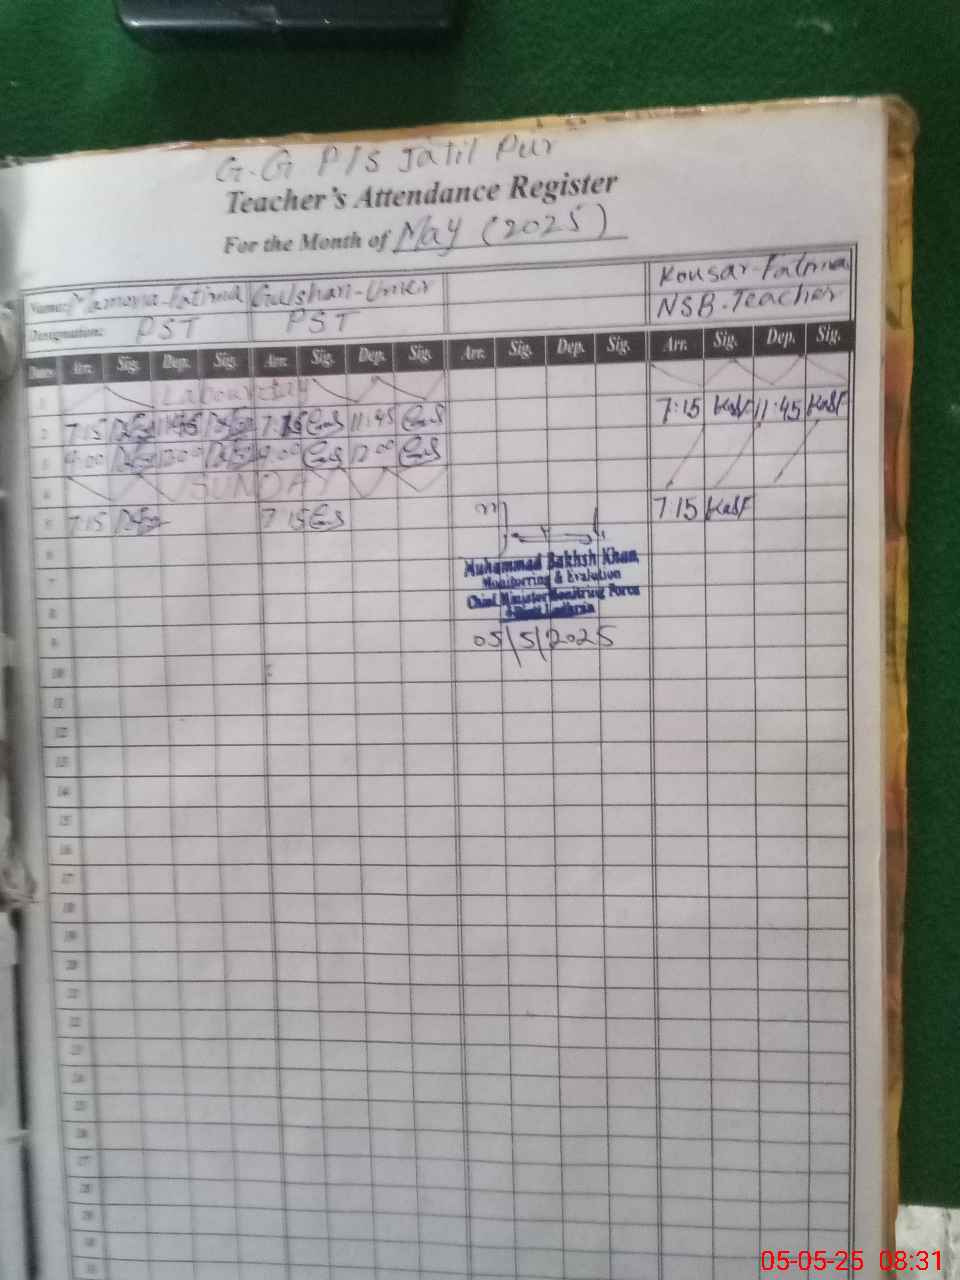 G.G P/S Jalil Pur
Teacher's Attendance Register
For the Month of May (2025)
Name: Mamona-Fatima Gulshan-Umer Kousar-Fatima
Designation: PST PST NSB.Teacher
Dates Arr. Sig. Dep. Sig. Arr. Sig. Dep. Sig. Arr. Sig. Dep. Sig. Arr. Sig. Dep. Sig.
1 Labour day
2 7:15 11:45 7:15 11:45 7:15 11:45
3 12:00 12:00
4 SUNDAY
5 7:15 7 15 7:15
6
7
8
9
Muhammad Bakhsh Khan
Monitorring & Evalution
Chief Minister Monitring Force
05/5/2025
10
11
12
13
14
15
16
17
18
19
20
21
22
23
24
25
26
27
28
29
30
31
05-05-25 08:31